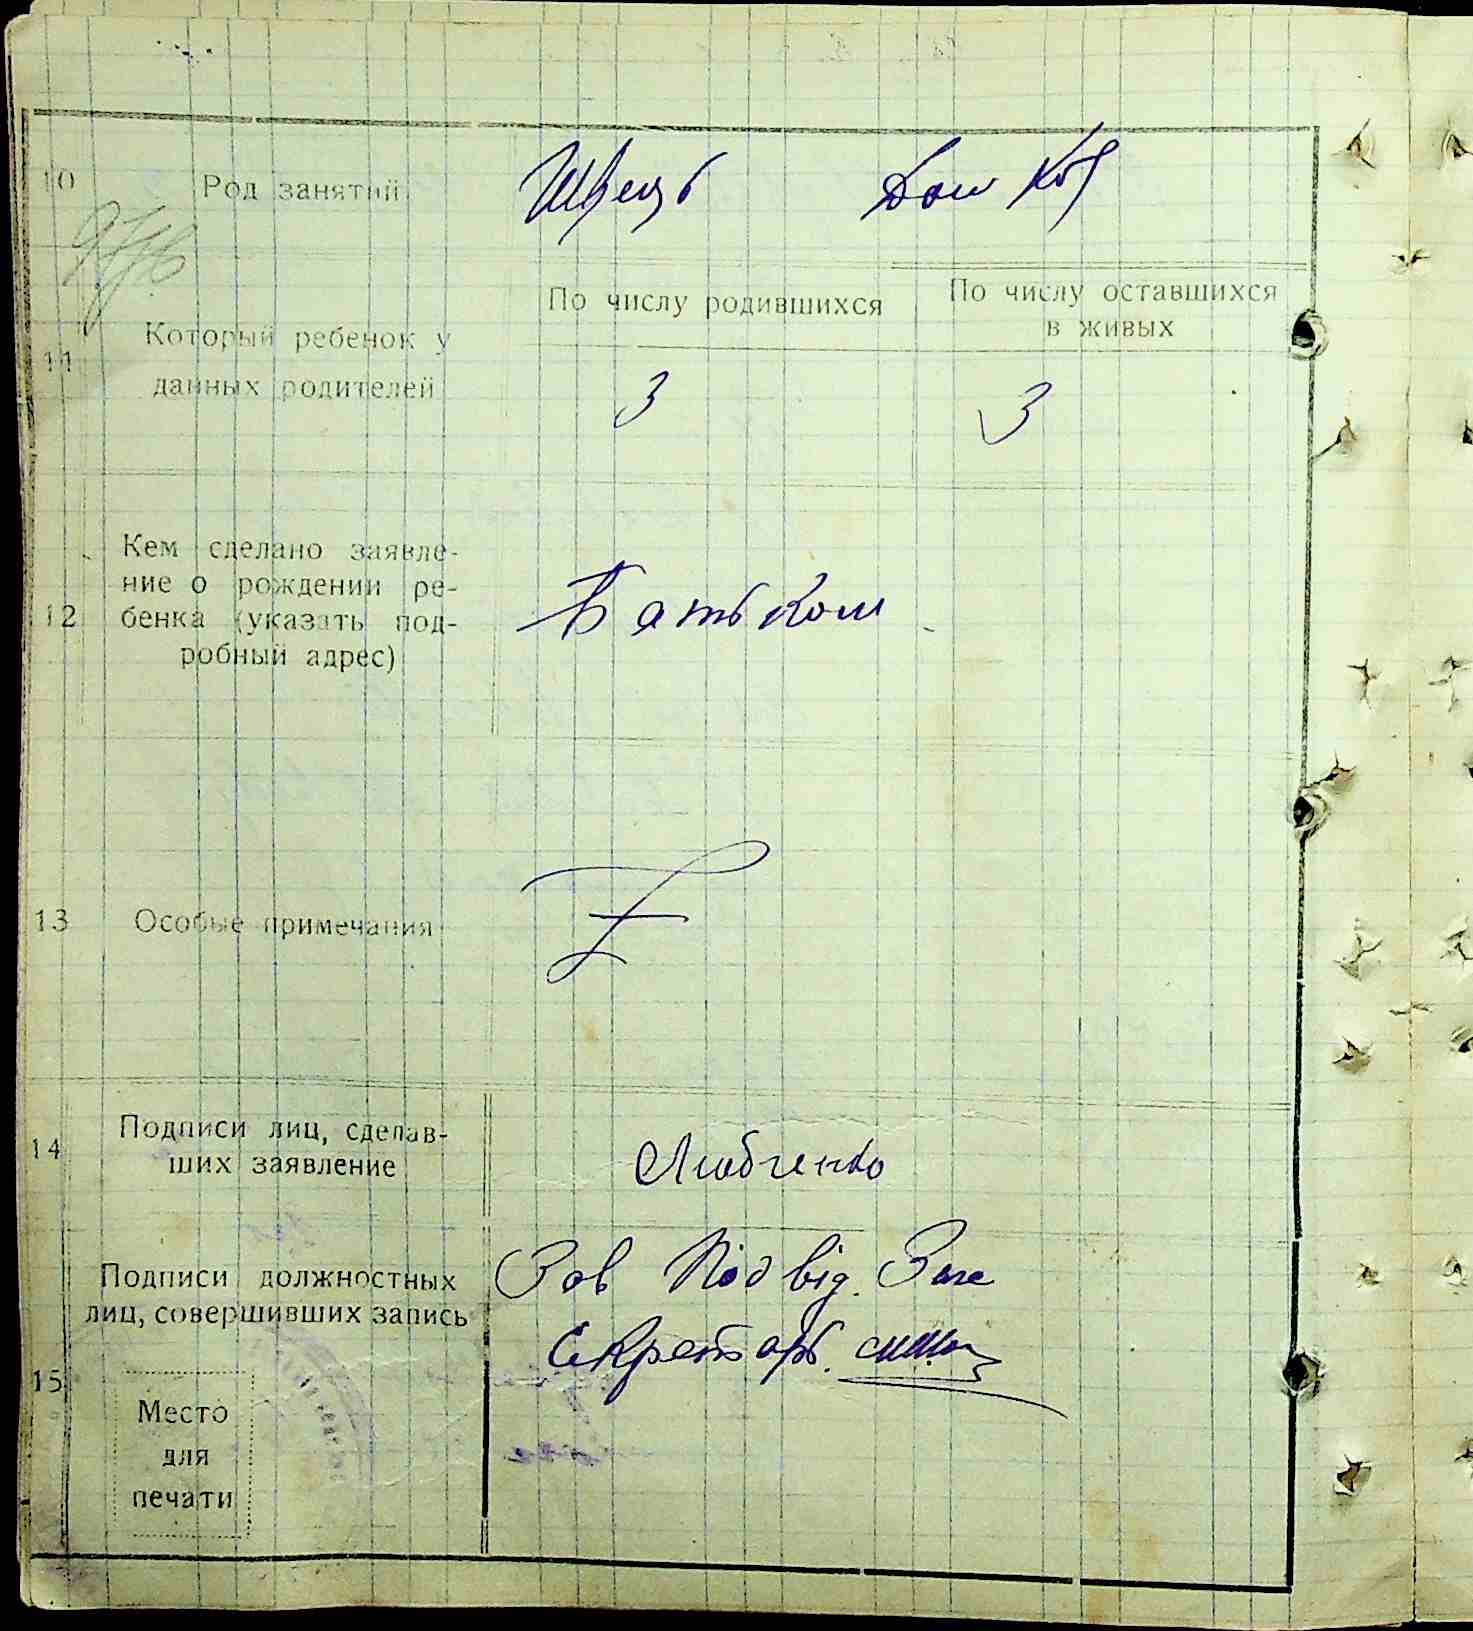 10 Род занятий Швець Дом хоз
По числу родившихся По числу оставшихся
в живых
11 Который ребенок у
данных родителей 3 3
Кем сделано заявле-
ние о рождении ре-
12 бенка (указать под- Батьком
робный адрес)
13 Особые примечания
14 Подписи лиц, сделав-
ших заявление Любченко
Подписи должностных Зав Підвід.
лиц, совершивших запись Секретарь
15
Место
для
печати